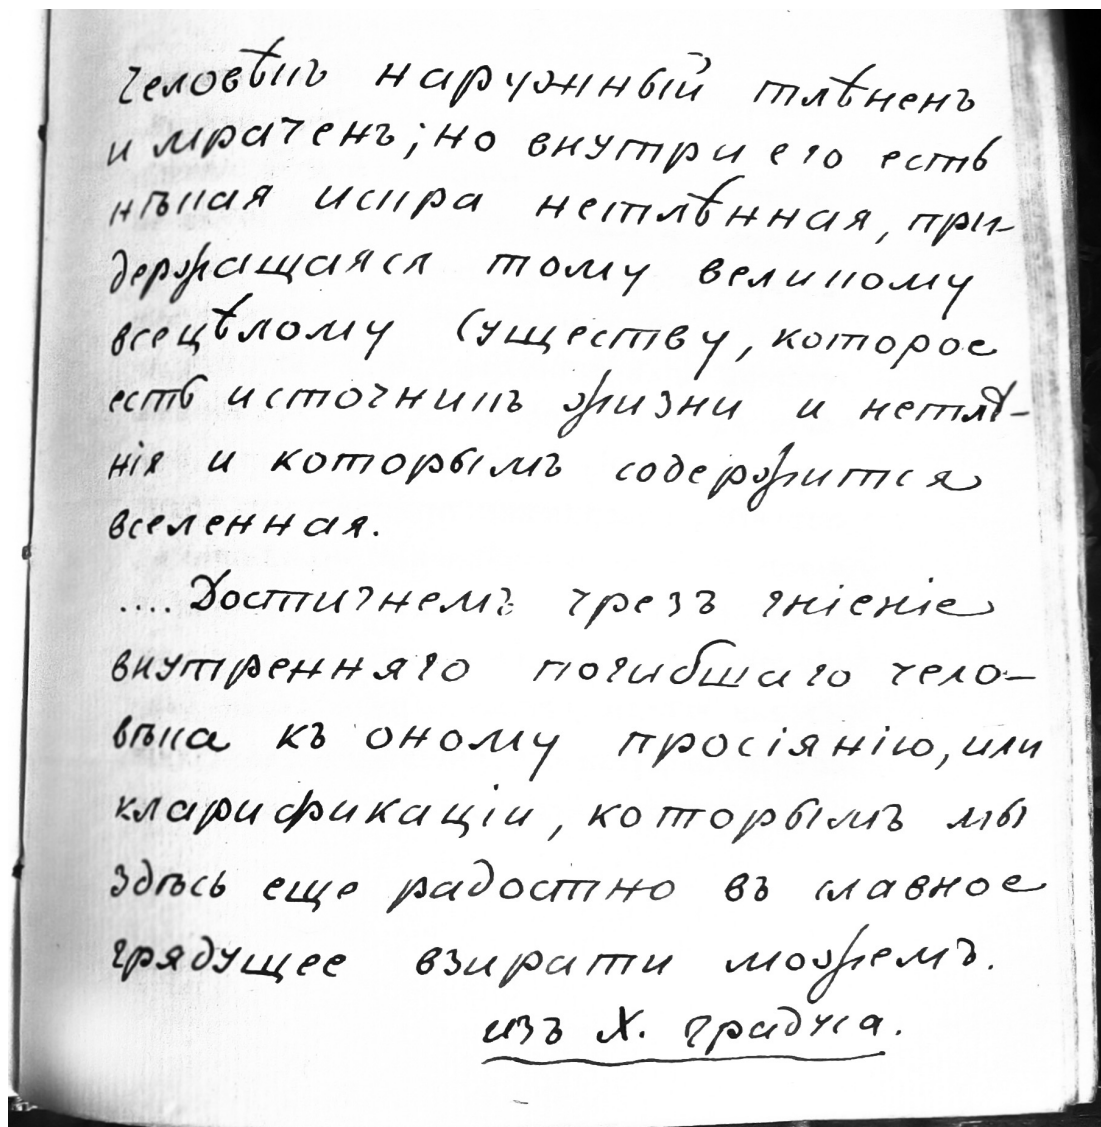 человѣкъ наружный тлѣненъ
и мраченъ; но внутри его есть
нѣкая искра нетлѣнная, при-
держащаяся тому великому
всецѣлому Существу, которое
есть источникъ жизни и нетлѣ-
нія и которымъ содержится
вселенная.
.... Достигнемъ чрезъ гніеніе
внутренняго погибшаго чело-
вѣка къ оному просіянію, или
кларификаціи, которымъ мы
здѣсь еще радостно въ славное
грядущее взирати можемъ.
изъ X. градуса.